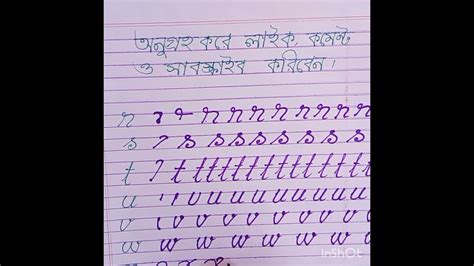 অনুগ্রহ করে লাইক, কমেন্ট
ও সাবস্ক্রাইব করিবেন।
r r r r r r r r r
s s s s s s s s s s s
t t t t t t t t t t t t
u u u u u u u u u u
v v v v v v v v v
w w w w w w w w
InShOt